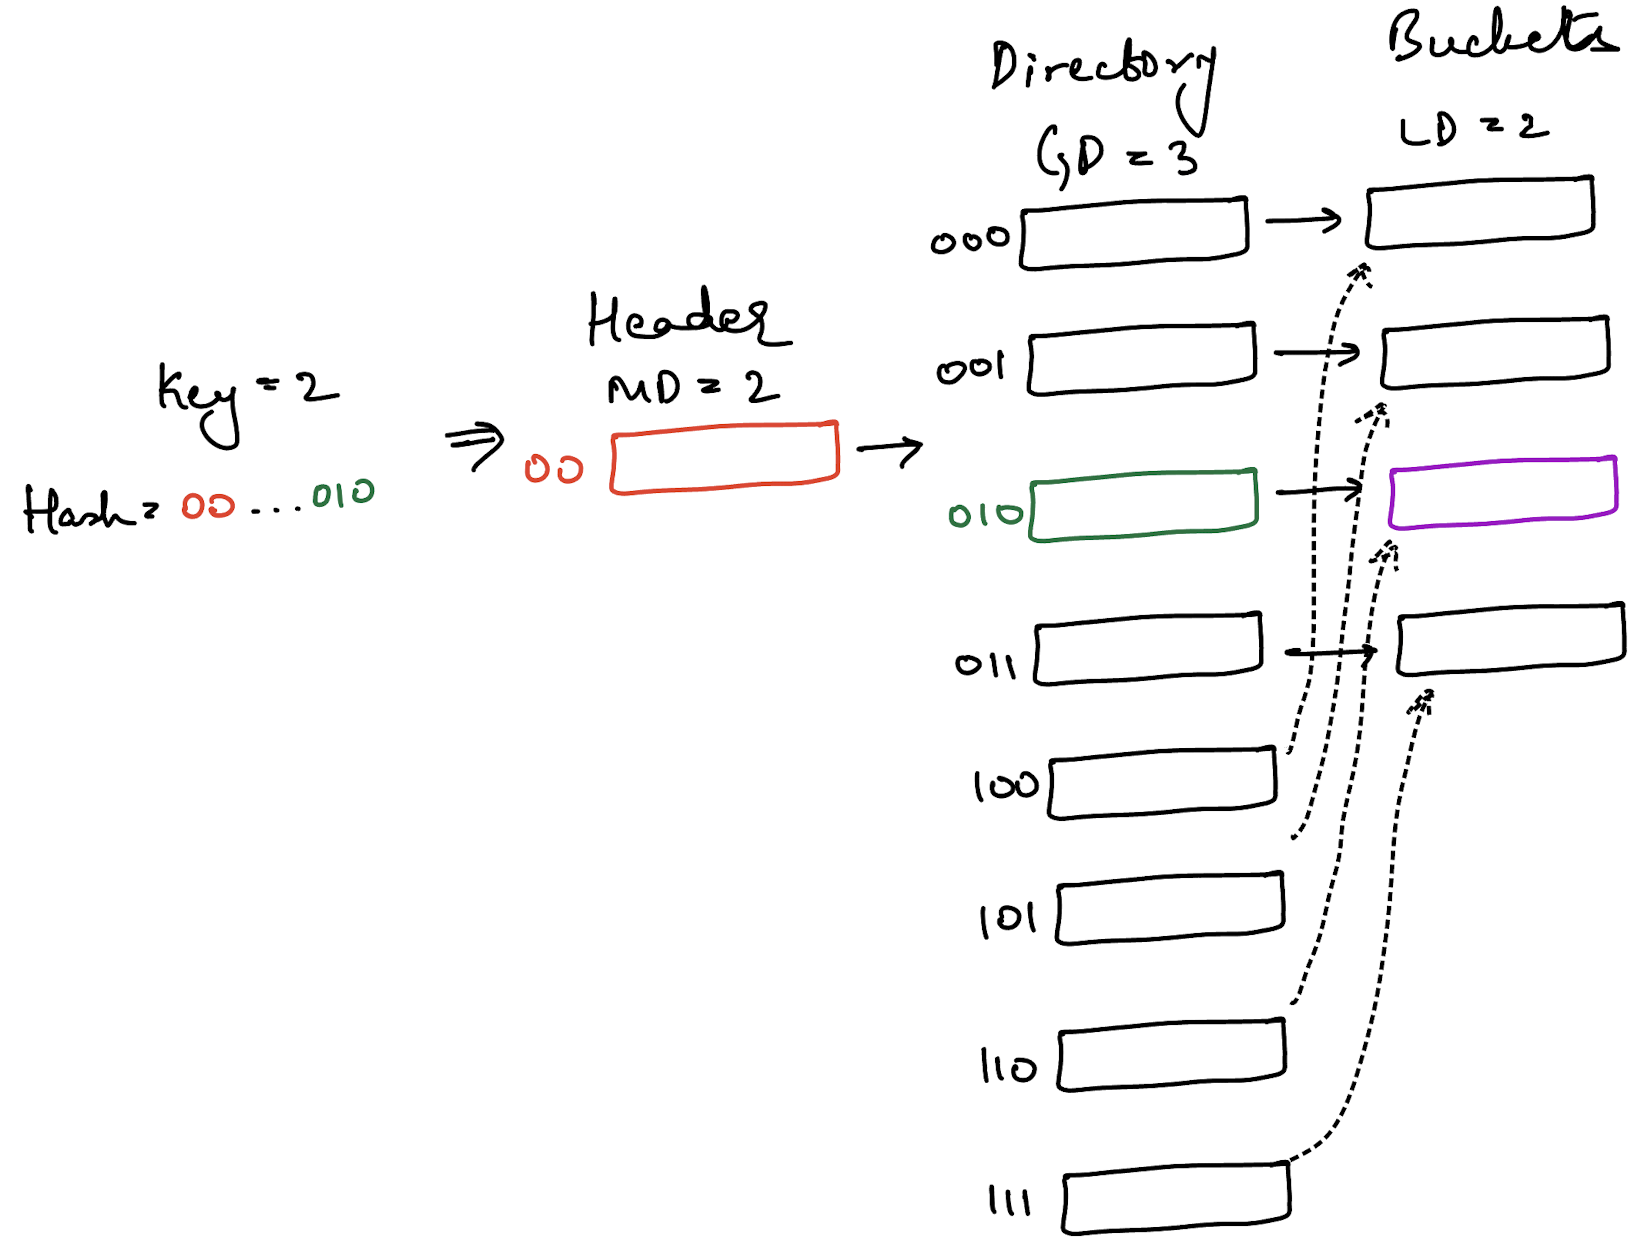 Key = 2
Hash = 00 ... 010
Header
MD = 2
00
Directory
GD = 3
000
001
010
011
100
101
110
111
Buckets
LD = 2